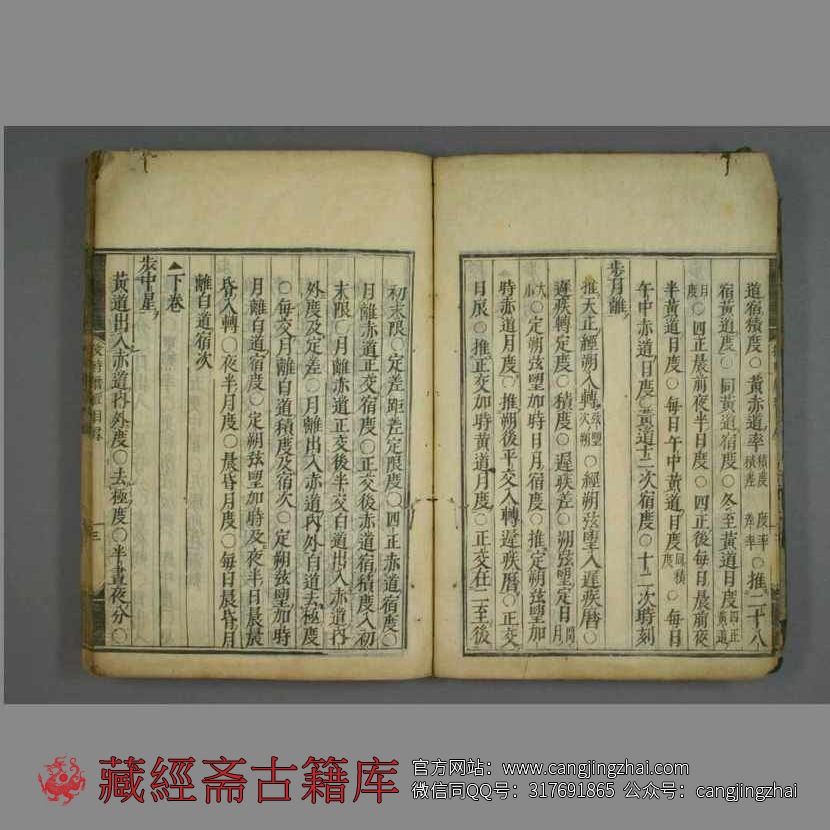 道宿積度○黄赤道率積度 積差 度率 差率○推二十八
宿黄道度○同黄道宿度○冬至黄道日度四正黄道
日度○四正晨前夜半日度○四正後每日晨前夜
半黄道日度○每日午中黄道日度○每日
午中赤道日度○黄道十二次宿度○十二次時刻
步月離
推天正經朔入轉弦望次朔○經朔弦望入遲疾曆○
遲疾轉定度○積度○遲疾差○朔弦望定日月
大小○定朔弦望加時日月宿度○推定朔弦望加
時赤道月度○推朔後平交入轉遲疾曆○正交
日辰○推正交加時黄道月度○正交在二至後
初末限○定差距差定限度○四正赤道宿度○
月離赤道正交宿度○正交後赤道宿積度入初
末限○月離赤道正交後半交白道出入赤道内
外度及定差○月離出入赤道内外白道去極度
○每交月離白道積度及宿次○定朔弦望加時
月離白道宿度○定朔弦望加時及夜半日晨昏
昏入轉○夜半月度○晨昏月度○每日晨昏月
離白道宿次
下卷
步中星
黄道出入赤道内外度○去極度○半晝夜分○
三
藏經斋古籍库
官方网站：www.cangjingzhai.com
微信同QQ号：317691865 公众号：cangjingzhai